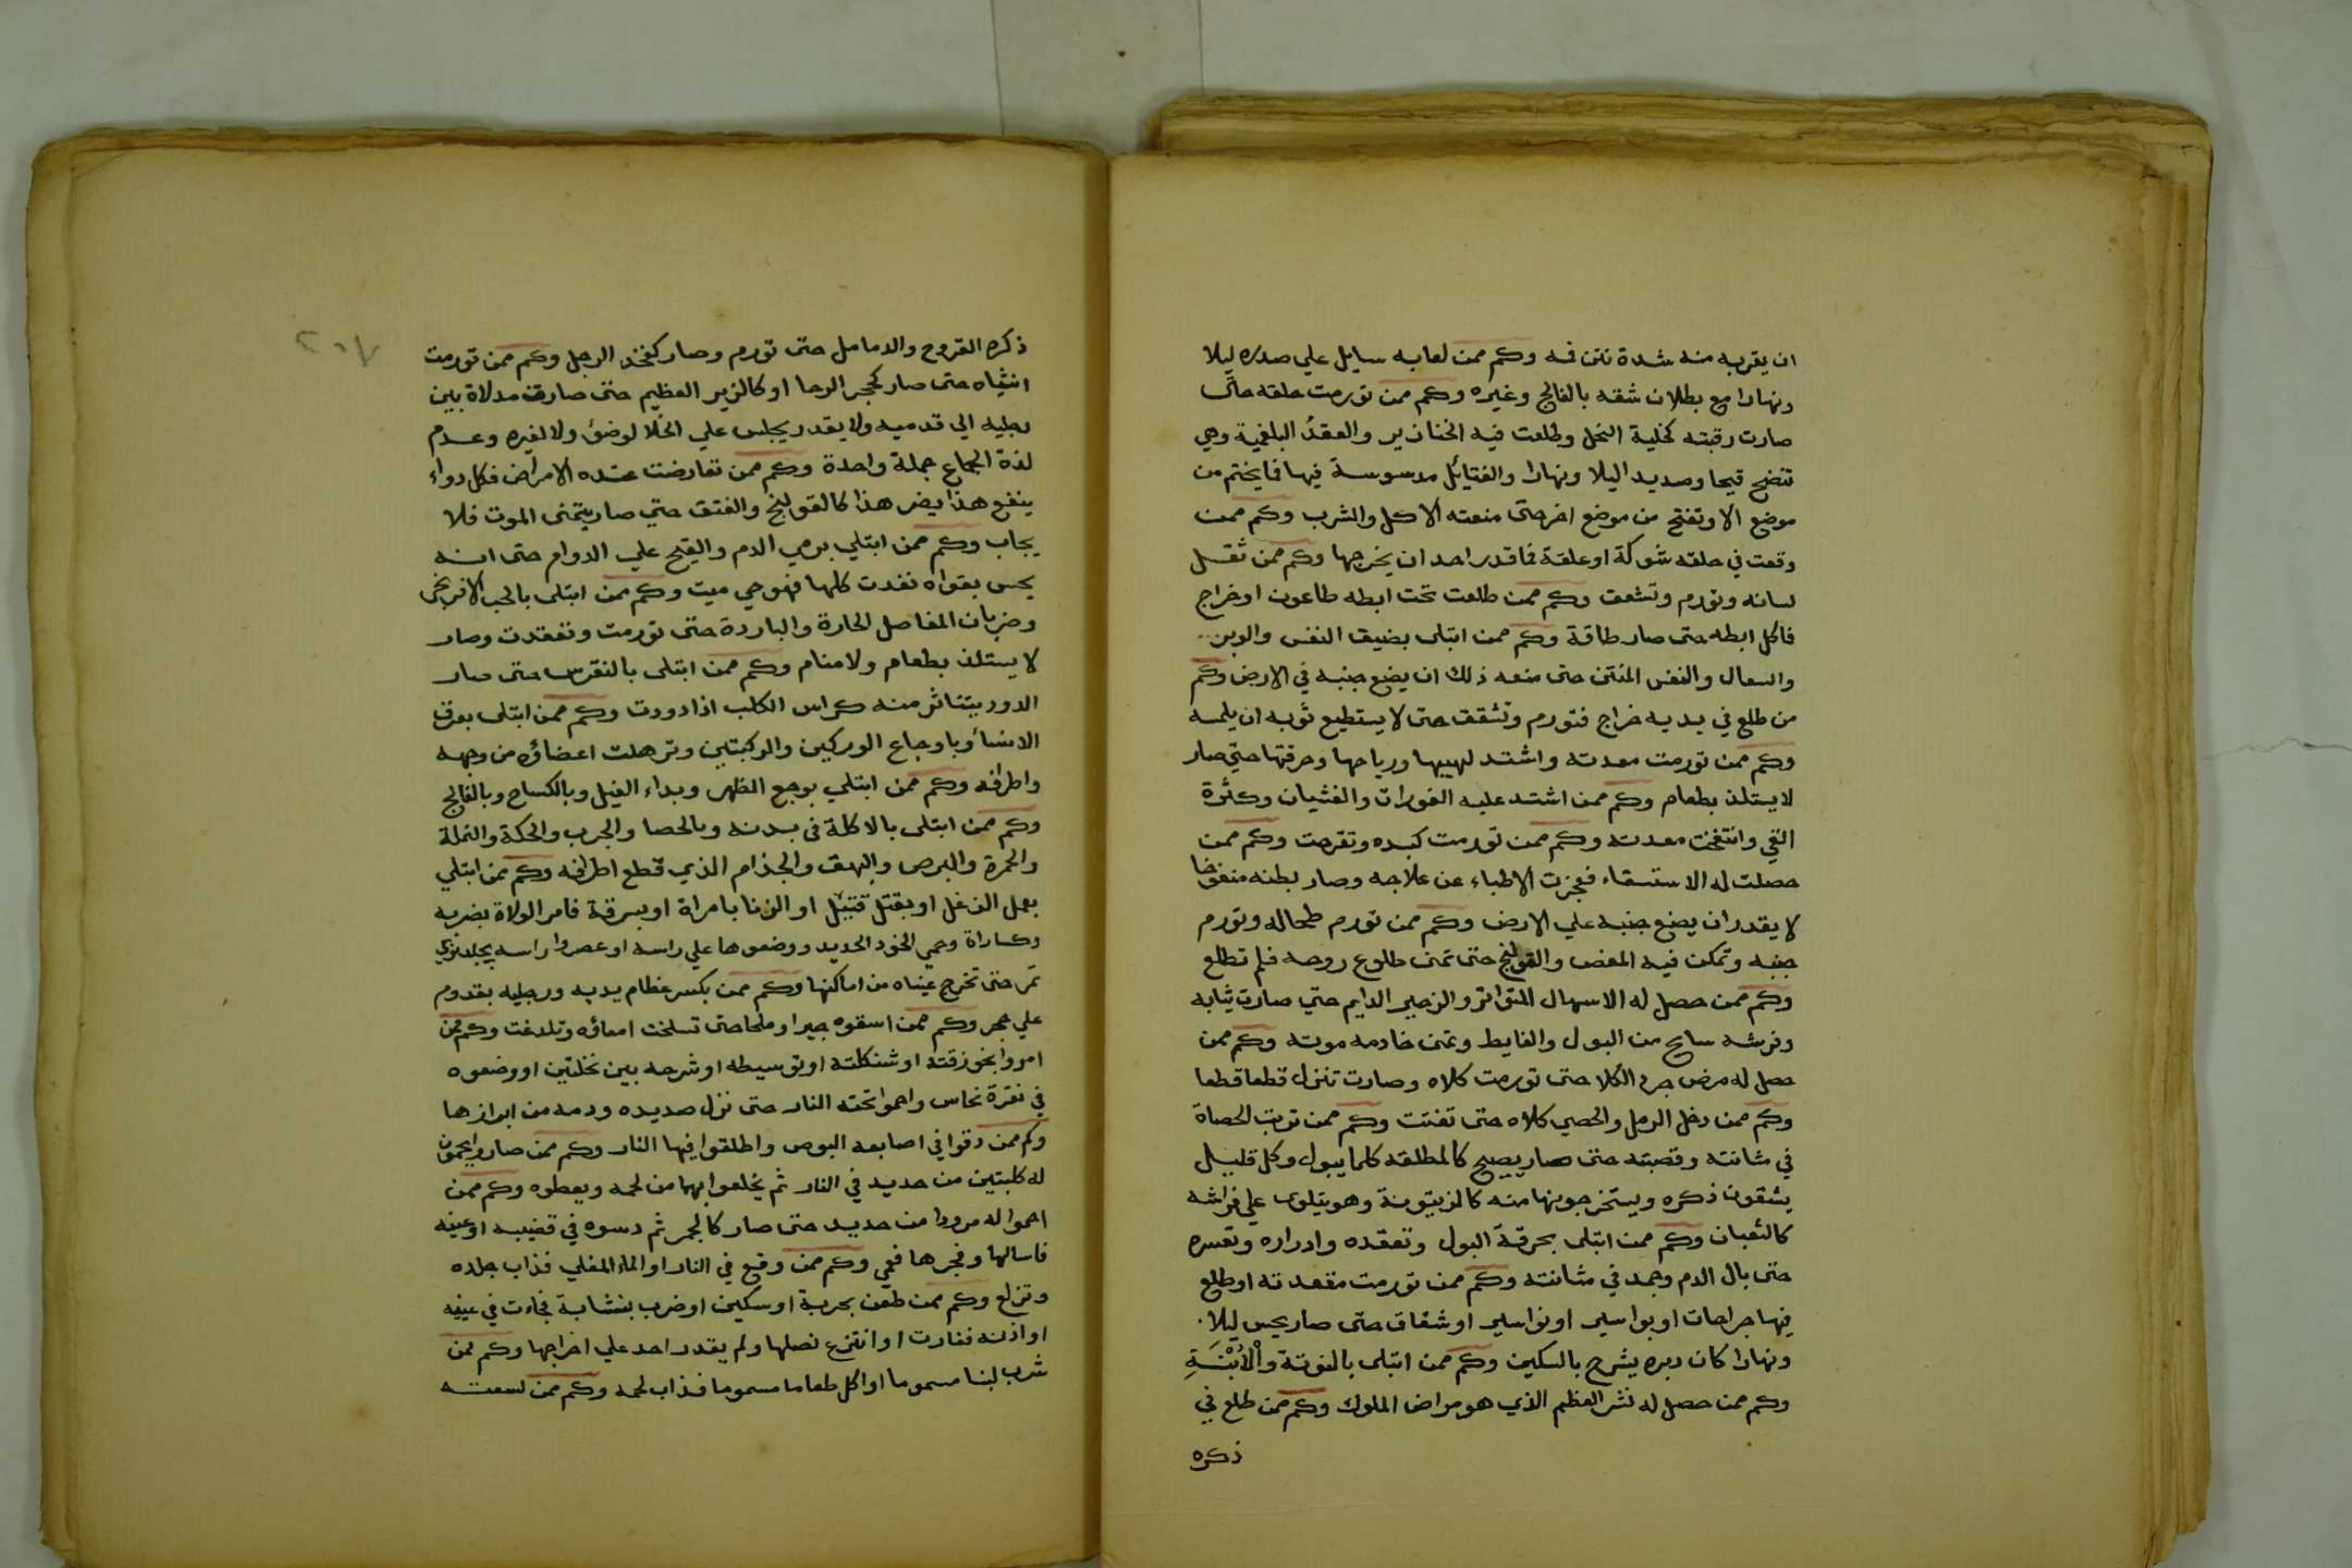 ان يقربه منه شدة نتن فمه وكم ممن لعابه سايل علي صدره ليلا
ونهارا مع بطلان شقه بالفالج وغيره وكم ممن تورمت حلقه حتى
صارت رقبته كخلية النحل وطلعت فيه الخنازير والعقدُ البلغمية وهي
تنضح قيحا وصديد اليلا ونهارا والفتايل مدسوسة فيها فما يختم من
موضع الا وتفتح من موضع اخر حتى منعته الاكل والشرب وكم ممن
وقعت في حلقه شوكة او علقة فما قدر احد ان يخرجها وكم ممن ثقل
لسانه وتورم وتشعت وكم ممن طلعت تحت ابطه طاعون او خراج
فاكل ابطه حتى صار طاقة وكم ممن ابتلى بضيق النفس والوبن
والسعال والنفس المنتن حتى منعه ذلك ان يضع جنبه في الارض وكم
من طلع في يديه خراج فتورم وتشققت حتى لا يستطيع ثوبه ان يلمسه
وكم ممن تورمت معدته واشتد لهيبها ورياحها وحرقتها حتي صار
لا يستلذ بطعام وكم ممن اشتد عليه الفورات والغثيان وكثرة
القي وانتفخت معدته وكم ممن تورمت كبده وتقرحت وكم ممن
حصلت له الاستسقاء فعجزت الاطباء عن علاجه وصار بطنه منفوخا
لا يقدر ان يضع جنبه علي الارض وكم ممن تورم طحاله وتورم
جنبه وتمكن فيه المغص والقولنج حتى تمنى طلوع روحه فلم تطلع
وكم ممن حصل له الاسهال المتواتر والزحير الدايم حتي صارت ثيابه
وفرشه سايح من البول والغايط وتمنى خادمه موته وكم ممن
حصل له مرض حرد الكلا حتى تورمت كلاه وصارت تنزل قطعا قطعا
وكم ممن دخل الرمل والحصي كلاه حتى تفتت وكم ممن تربت الحصاة
في مثانته وقصبته حتى صار يصيح كالمطلقه كلما يبول وكل قليل
يشقون ذكره ويستخرجونها منه كالزيتونة وهو يتلوى علي فراشه
كالثعبان وكم ممن ابتلى بحرقة البول وتعقده وادراره وتعسره
حتى بال الدم وجمد في مثانته وكم ممن تورمت مقعدته او طلع
فيها جراحات او بواسير او نواسير او شقاق حتى صار يحس ليلا
ونهارا كان دبره يشرح بالسكين وكم ممن ابتلى بالفوتة والْأُبْنَةِ
وكم ممن حصل له نشر العظم الذي هو مراض الملوك وكم ممن طلع في
ذكره
٢٠٧
ذكره القروح والدمامل حتى تورم وصار كفخذ الرجل وكم ممن تورمت
انثياه حتى صار كحجر الرحا او كالزير العظيم حتى صارت مدلاة بين
رجليه الي قدميه ولا يقدر يجلس علي الخلا لوضئ ولا لغيره وعدم
لذة الجماع جملة واحدة وكم ممن تعارضت عنده الامراض فكل دواء
ينفع هذا يضر هذا كالقولنج والفتق حتي صار يتمنى الموت فلا
يجاب وكم ممن ابتلي برمي الدم والقيح علي الدوام حتى انه
يحس بقواه نفدت كلها فهو حي ميت وكم ممن ابتلى بالحب الافرنجى
وضربان المفاصل الحارة والباردة حتى تورمت وتعقدت وصار
لا يستلذ بطعام ولا منام وكم ممن ابتلى بالنقرس حتى صار
الدود يتناثر منه كراس الكلب اذا دودت وكم ممن ابتلى بعرق
الانسا وباوجاع الوركين والركبتين وترهلت اعضاؤه من وجهه
واطرافه وكم ممن ابتلي بوجع الظهر وبداء الفيل وبالكساح وبالفالج
وكم ممن ابتلى بالاكلة فى بدنه وبالحصا والجرب والحكة والنملة
والحمرة والبرص والبهق والجذام الذي قطع اطرافه وكم ممن ابتلي
بعمل الزغل او بقتل قتيل او الزنا بامراة او بسرقة فامر الولاة بضربه
وكساراة وحمي الخود الحديد ووضعوها علي راسه او عصروا راسه بجلد
تمر حتى تخرج عيناه من اماكنها وكم ممن بكسر عظام يديه ورجليه بقدوم
علي حجر وكم ممن اسقوه جيرا وملحا حتى تسلخت امعاؤه وتلدغت وكم ممن
امروا بخوزقته او شنكلته او توسيطه او شرحه بين نخلتين او وضعوه
في نقرة نحاس واحموا تحته النار حتى نزل صديده ودمه من ابرازها
وكم ممن دقوا في اصابعه البوص واطلقوا فيها النار وكم ممن صاروا يحمون
له كلبتين من حديد في النار ثم يخلعوا بهما من لحمه ويعطوه وكم ممن
احموا له مرودا من حديد حتى صار كالجمر ثم دسوه في قضيبه او عينه
فاسالها وفجرها فعمي وكم ممن وقع في النار او الماء المغلي فذاب جلده
وتزلع وكم ممن طعن بحربة او سكين او ضرب بنشابة فجاءت في عينيه
او اذنه فغارت او انتزع نصلها ولم يقدر احد علي اخراجها وكم ممن
شرب لبنا مسموما او اكل طعاما مسموما فذاب لحمه وكم ممن لسعته